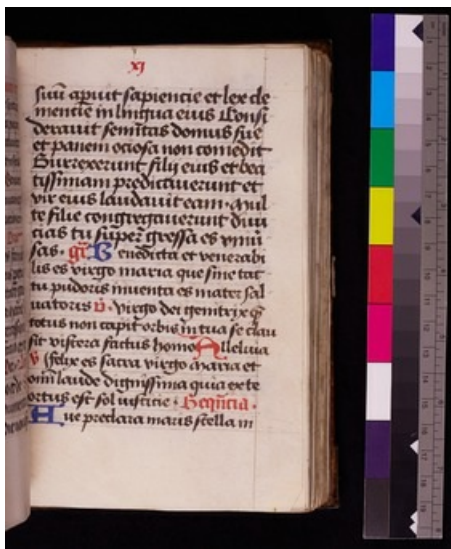 xj
suū aperuit sapientie et lex cle
mentie in lingua eius Consi
deravit semitas domus sue
et panem ociosa non comedit
Surrexerunt filij eius et bea
tissimam predicaverunt et
vir eius laudavit eam · Mul
te filie congregaverunt divi
cias tu super gressa es vnivˀ
sas · Benedicta et venerabi
lis es virgo maria que sine tac
tu pudoris inventa es mater sal
vatoris v̄ · Virgo dei genitrix q̄
totus non capit orbis in tua se clau
sit viscera factus homo Alleluia
v̄ felix es sacra virgo maria et
omī laude dignissima quia ex te
ortus est sol iusticie · Sequēcia ·
Ave preclara maris stella in